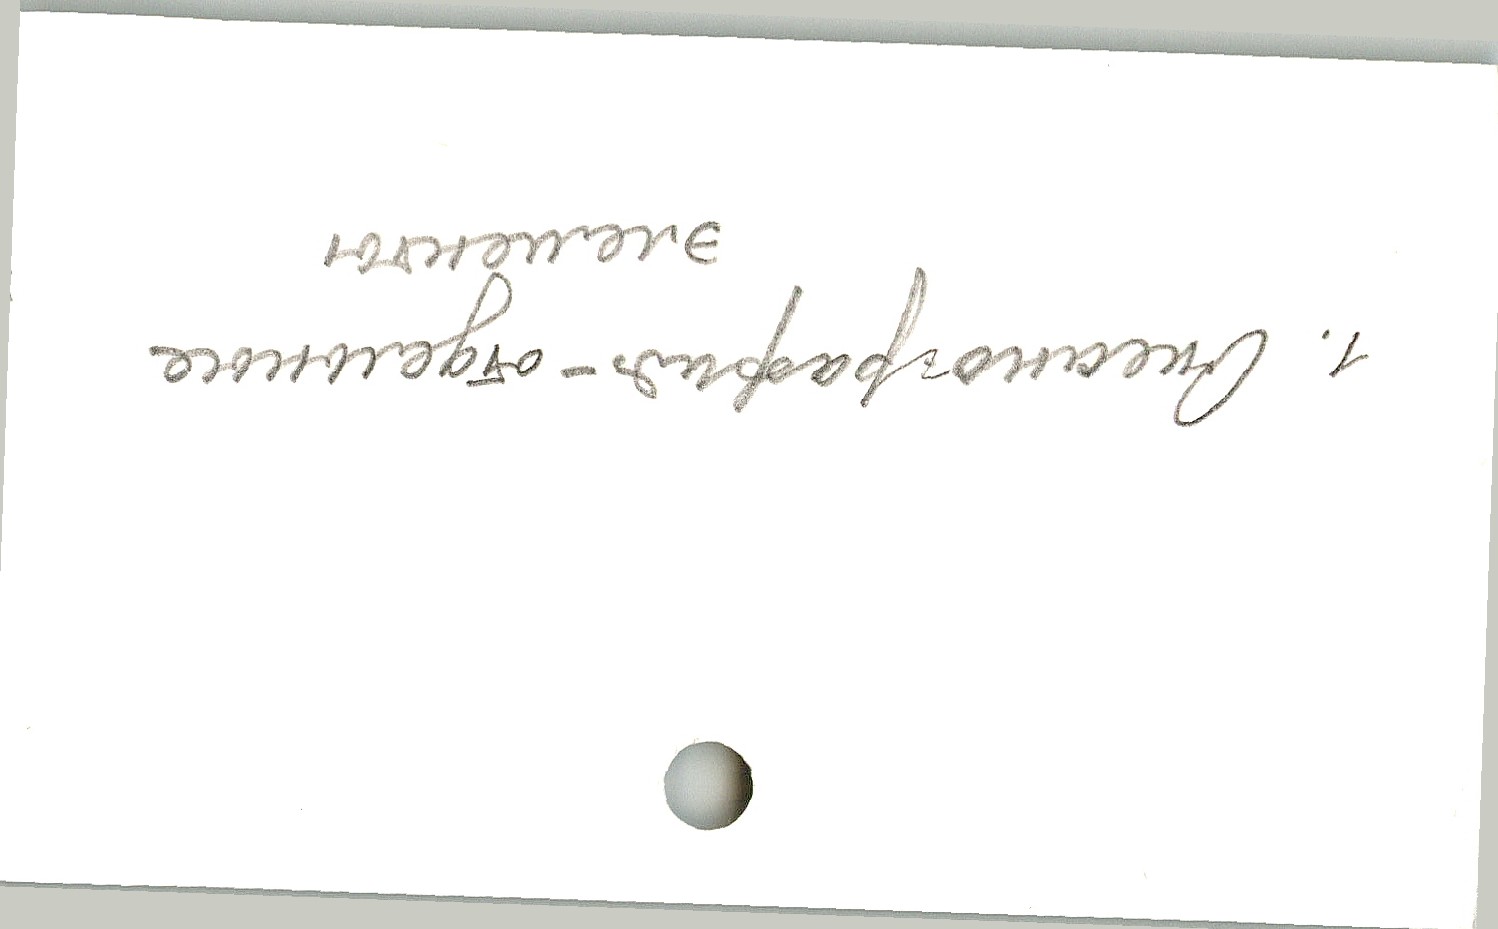 1. Океанография - отдельные
элементы